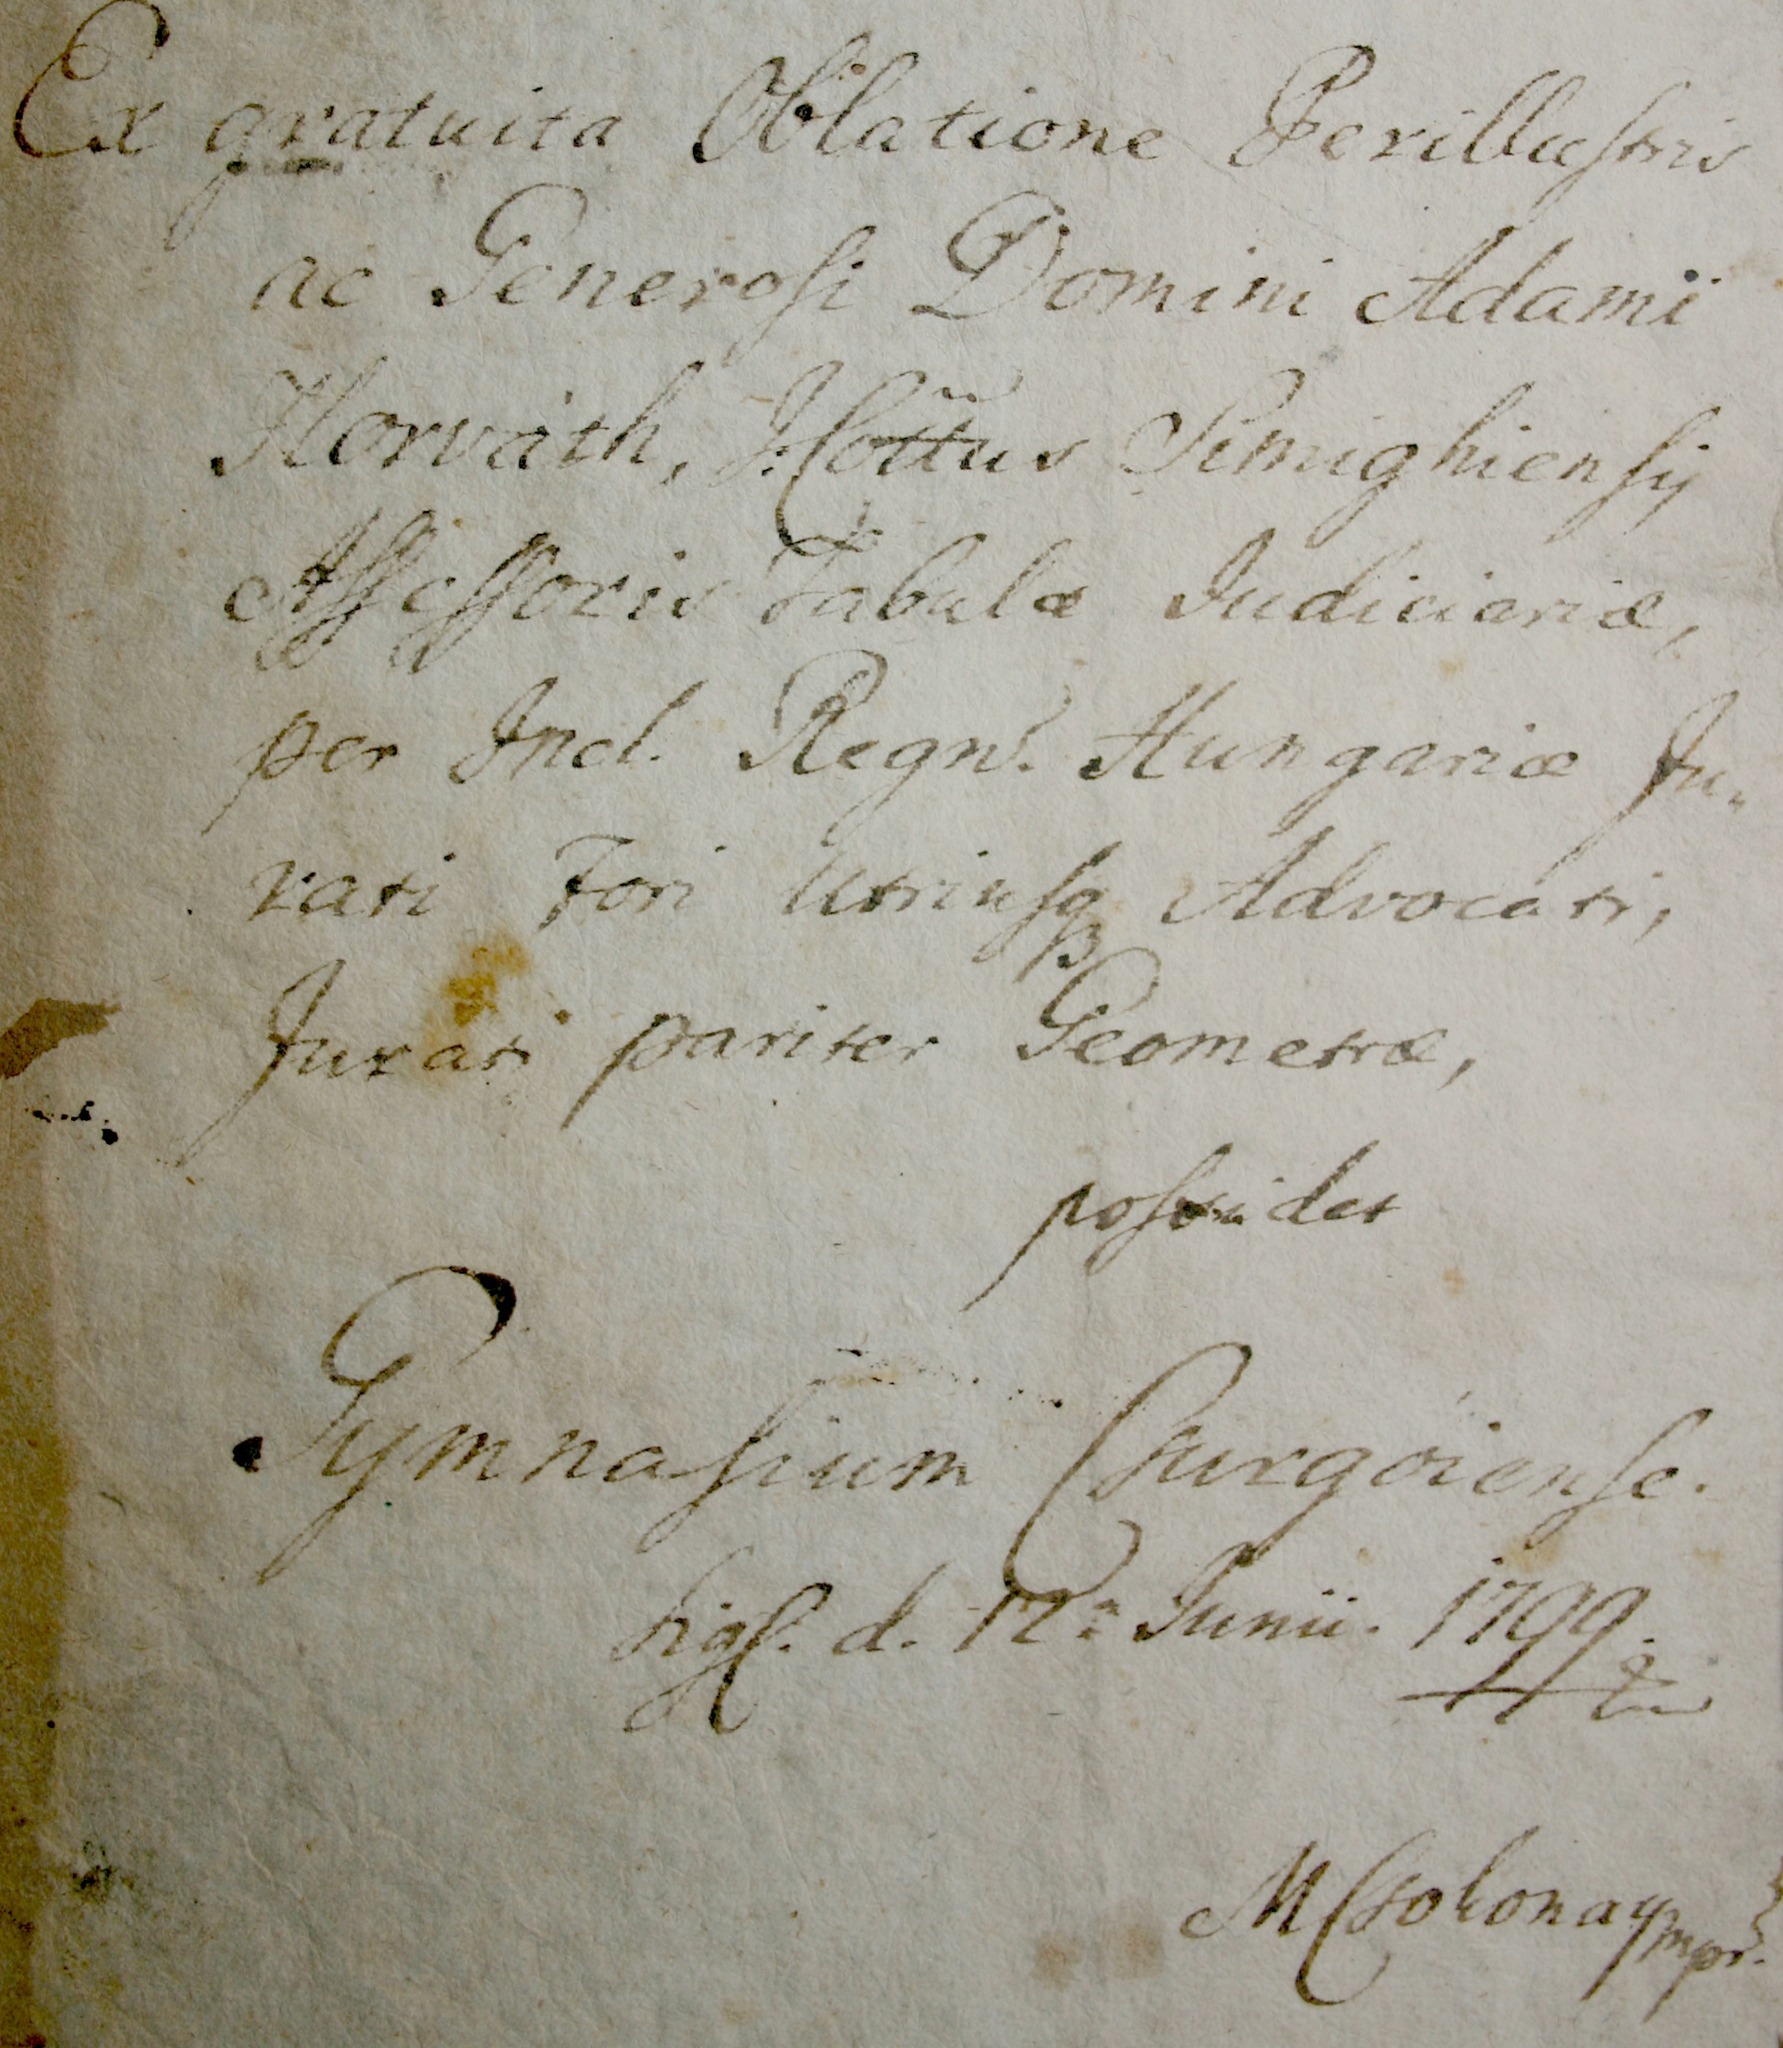 Ex gratuita Oblatione Perillustris
ac Generosi Domini Adami
Horváth, I. Cottus Simighiensis
Assessoris Tabulæ Judiciariæ,
per Incl. Regn. Hungariæ Ju„
rati Fori Utriusq Advocati,
Jurati pariter Geometræ,
possidet
Gymnasium Csurgóiense.
sigs. d. 12a Junii. 1799.
M Csokonay mpr.